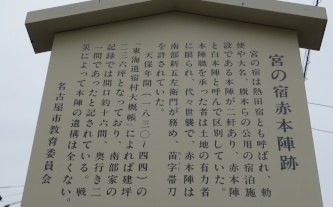 宮の宿赤本陣跡
宮の宿は熱田宿とも呼ばれ、勅
使や大名、旗本らの公用の宿泊施
設である本陣が二軒あり、赤本陣
と白本陣と呼んで区別していた。
本陣職を承った者は土地の有力者
に限られ、代々世襲で、赤本陣は
南部新五左衛門が務め、苗字帯刀
を許されていた。
天保年間(一八三〇~四四)の
「東海道宿村大概帳」によれば建坪
二三六坪となっており、南部家の
記録では間口約十六間、奥行き二
一間であったと記されている。戦
災によって本陣の遺構は全くない。
名古屋市教育委員会